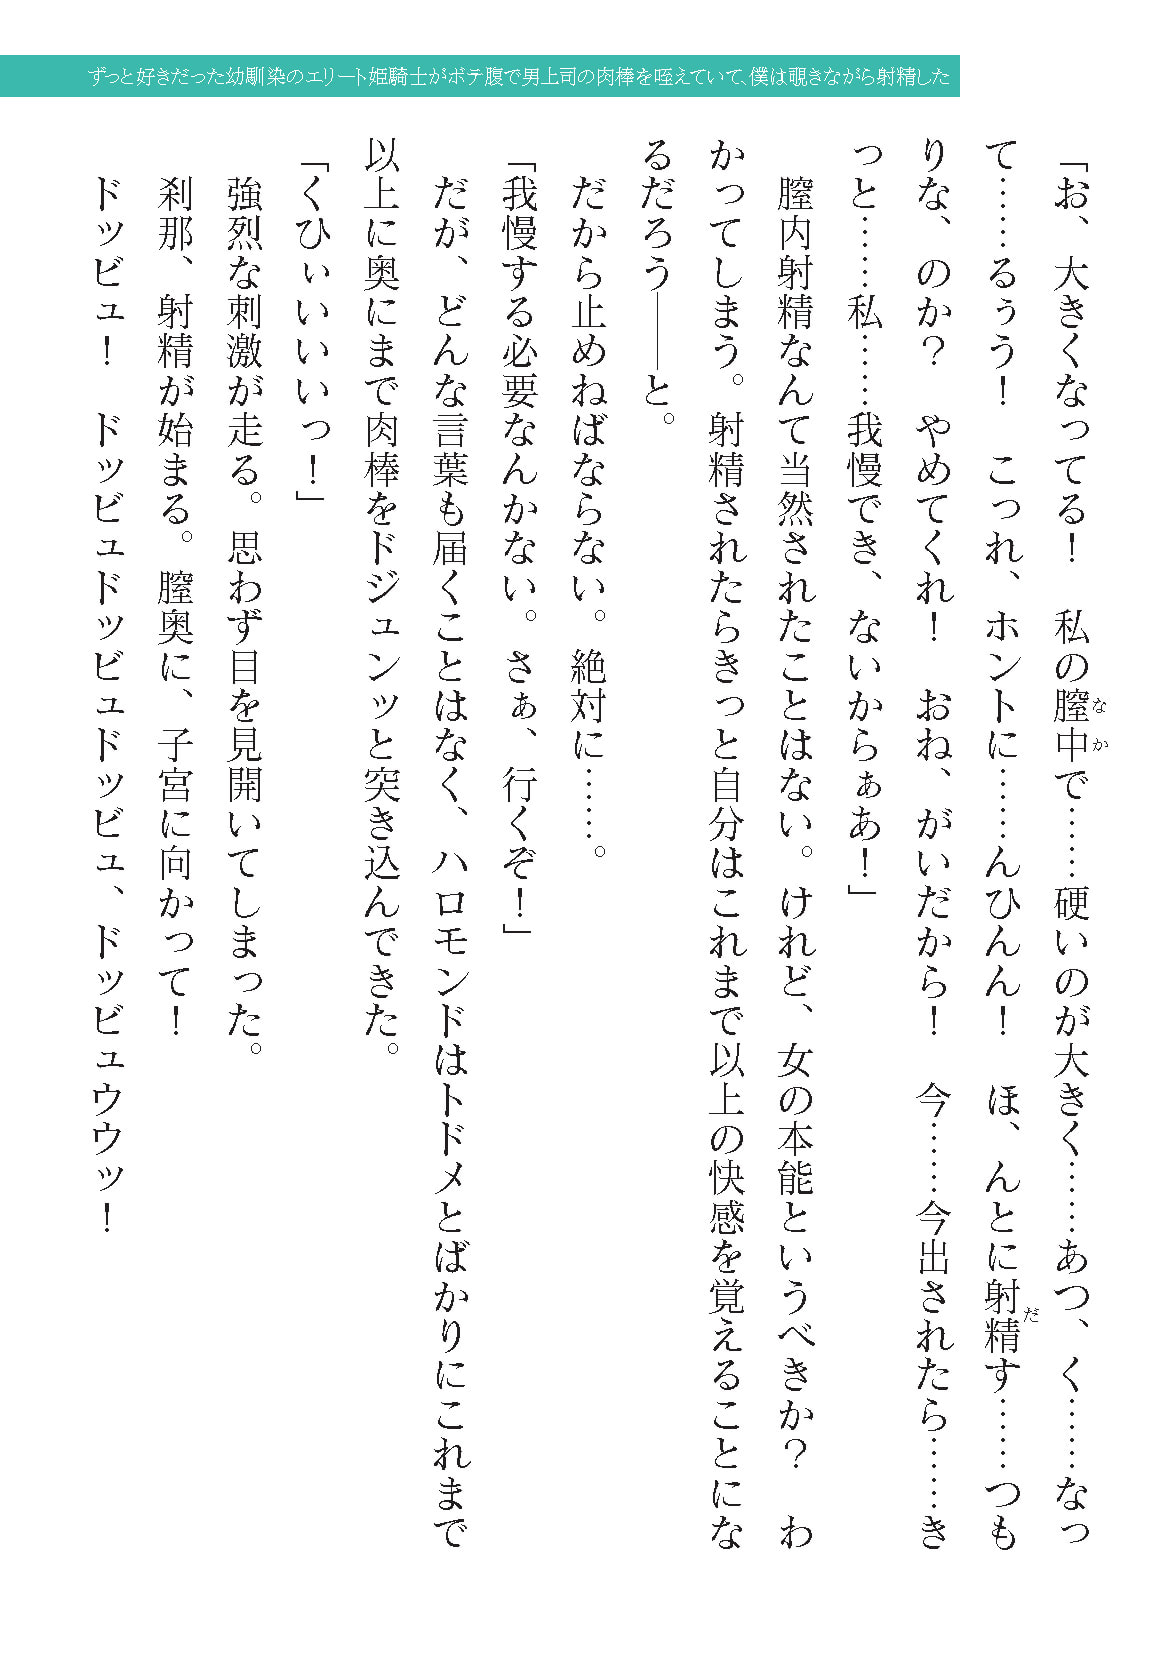 ずっと好きだった幼馴染のエリート姫騎士がボテ腹で男上司の肉棒を咥えていて、僕は覗きながら射精した
「お、大きくなってる！　私の膣中で……硬いのが大きく……あつ、く……なっ
なか
て……るぅう！　こっれ、ホントに……んひんん！　ほ、んとに射精す……つも
だ
りな、のか？　やめてくれ！　おね、がいだから！　今……今出されたら……き
っと……私……我慢でき、ないからぁあ！」
　膣内射精なんて当然されたことはない。けれど、女の本能というべきか？　わ
かってしまう。射精されたらきっと自分はこれまで以上の快感を覚えることにな
るだろう――と。
　だから止めねばならない。絶対に……。
「我慢する必要なんかない。さぁ、行くぞ！」
　だが、どんな言葉も届くことはなく、ハロモンドはトドメとばかりにこれまで
以上に奥にまで肉棒をドジュンッと突き込んできた。
「くひぃいいいっ！」
　強烈な刺激が走る。思わず目を見開いてしまった。
　刹那、射精が始まる。膣奥に、子宮に向かって！
　ドッビュ！　ドッビュドッビュドッビュ、ドッビュウウッ！